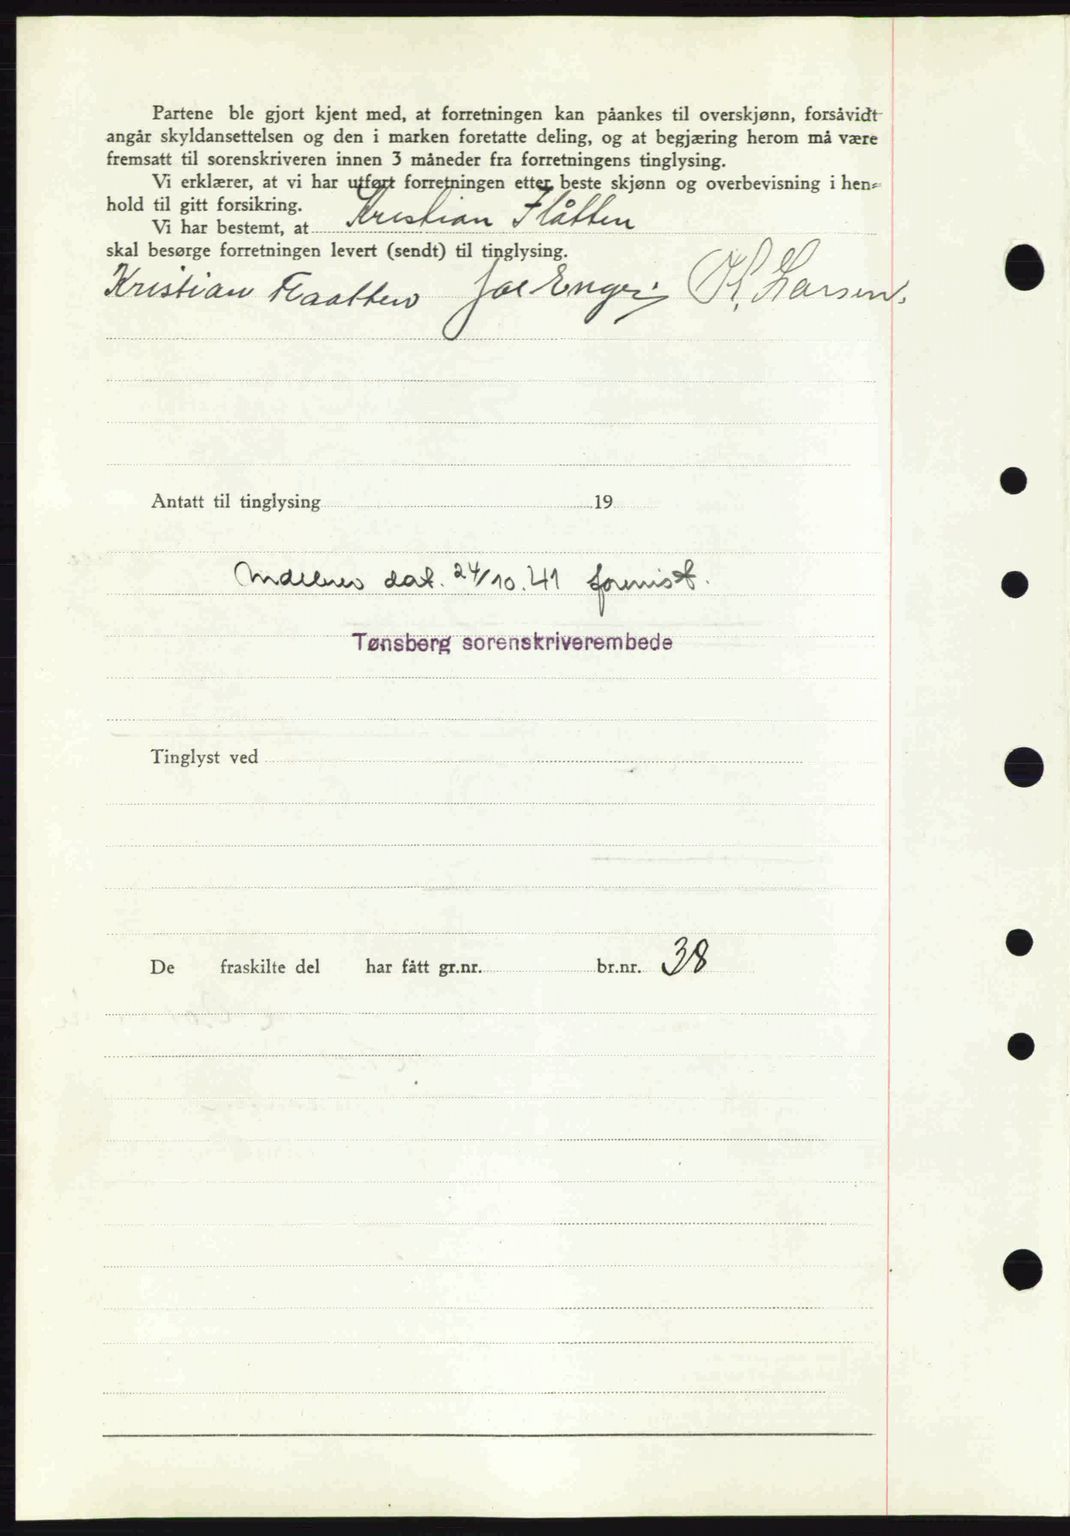 Partene ble gjort kjent med, at forretningen kan påankes til overskjønn, forsåvidt
angår skyldansettelsen og den i marken foretatte deling, og at begjæring herom må være
fremsatt til sorenskriveren innen 3 måneder fra forretningens tinglysing.
Vi erklærer, at vi har utført forretningen etter beste skjønn og overbevisning i hen-
hold til gitt forsikring.
Vi har bestemt, at Kristian Flåtten
skal besørge forretningen levert (sendt) til tinglysing.
Kristian Flaatten Joe Enger K. Larsen.
Antatt til tinglysing 19
dat. 24/10.41
Tønsberg sorenskriverembede
Tinglyst ved
De fraskilte del har fått gr.nr. br.nr. 38